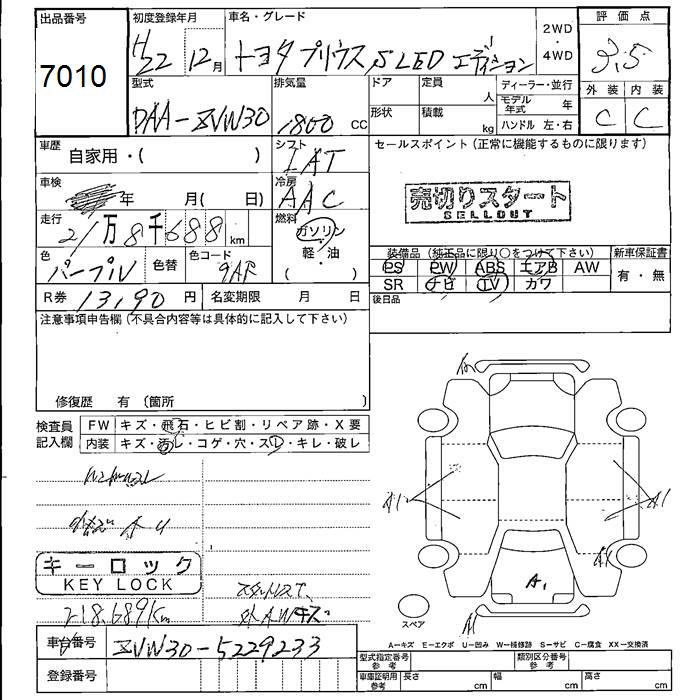 出品番号
7010
初度登録年月
H22 12月
車名・グレード
トヨタ プリウス S LED エディション
2WD
・
4WD
評価点
3.5
外装 内装
C C
型式
DAA-ZVW30
排気量
1800 CC
ドア
形状
定員 人
積載 kg
ディーラー・並行
モデル年式 年
ハンドル 左・右
車歴
自家用・( )
シフト
IAT
セールスポイント (正常に機能するものに限ります)
売切りスタート
SELLOUT
車検
年 月( 日)
冷房
AAC
走行
21万8千688km
燃料
ガソリン
軽・油
( )
色
パープル
色替
色コード
9AF
装備品 (純正品に限り○をつけて下さい)
新車保証書
PS PW ABS エアB AW
SR ナビ TV カワ
有・無
R券 13,190円
名変期限 月 日
後日品
注意事項申告欄 (不具合内容等は具体的に記入して下さい)
修復歴 有 (箇所 )
検査員
記入欄
FW キズ・飛石・ヒビ割・リペア跡・X要
内装 キズ・汚レ・コゲ・穴・スレ・キレ・破レ
A1
A1
A1
A1
キーロック
KEY LOCK
218,689Km
外AWキズ
スペア
A=キズ E=エクボ U=凹み W=補修跡 S=サビ C=腐食 XX=交換済
車台番号
ZVW30-5229233
登録番号
型式指定番号
参考
類別区分番号
参考
車庫証明用
参考
長さ cm
幅 cm
高さ cm